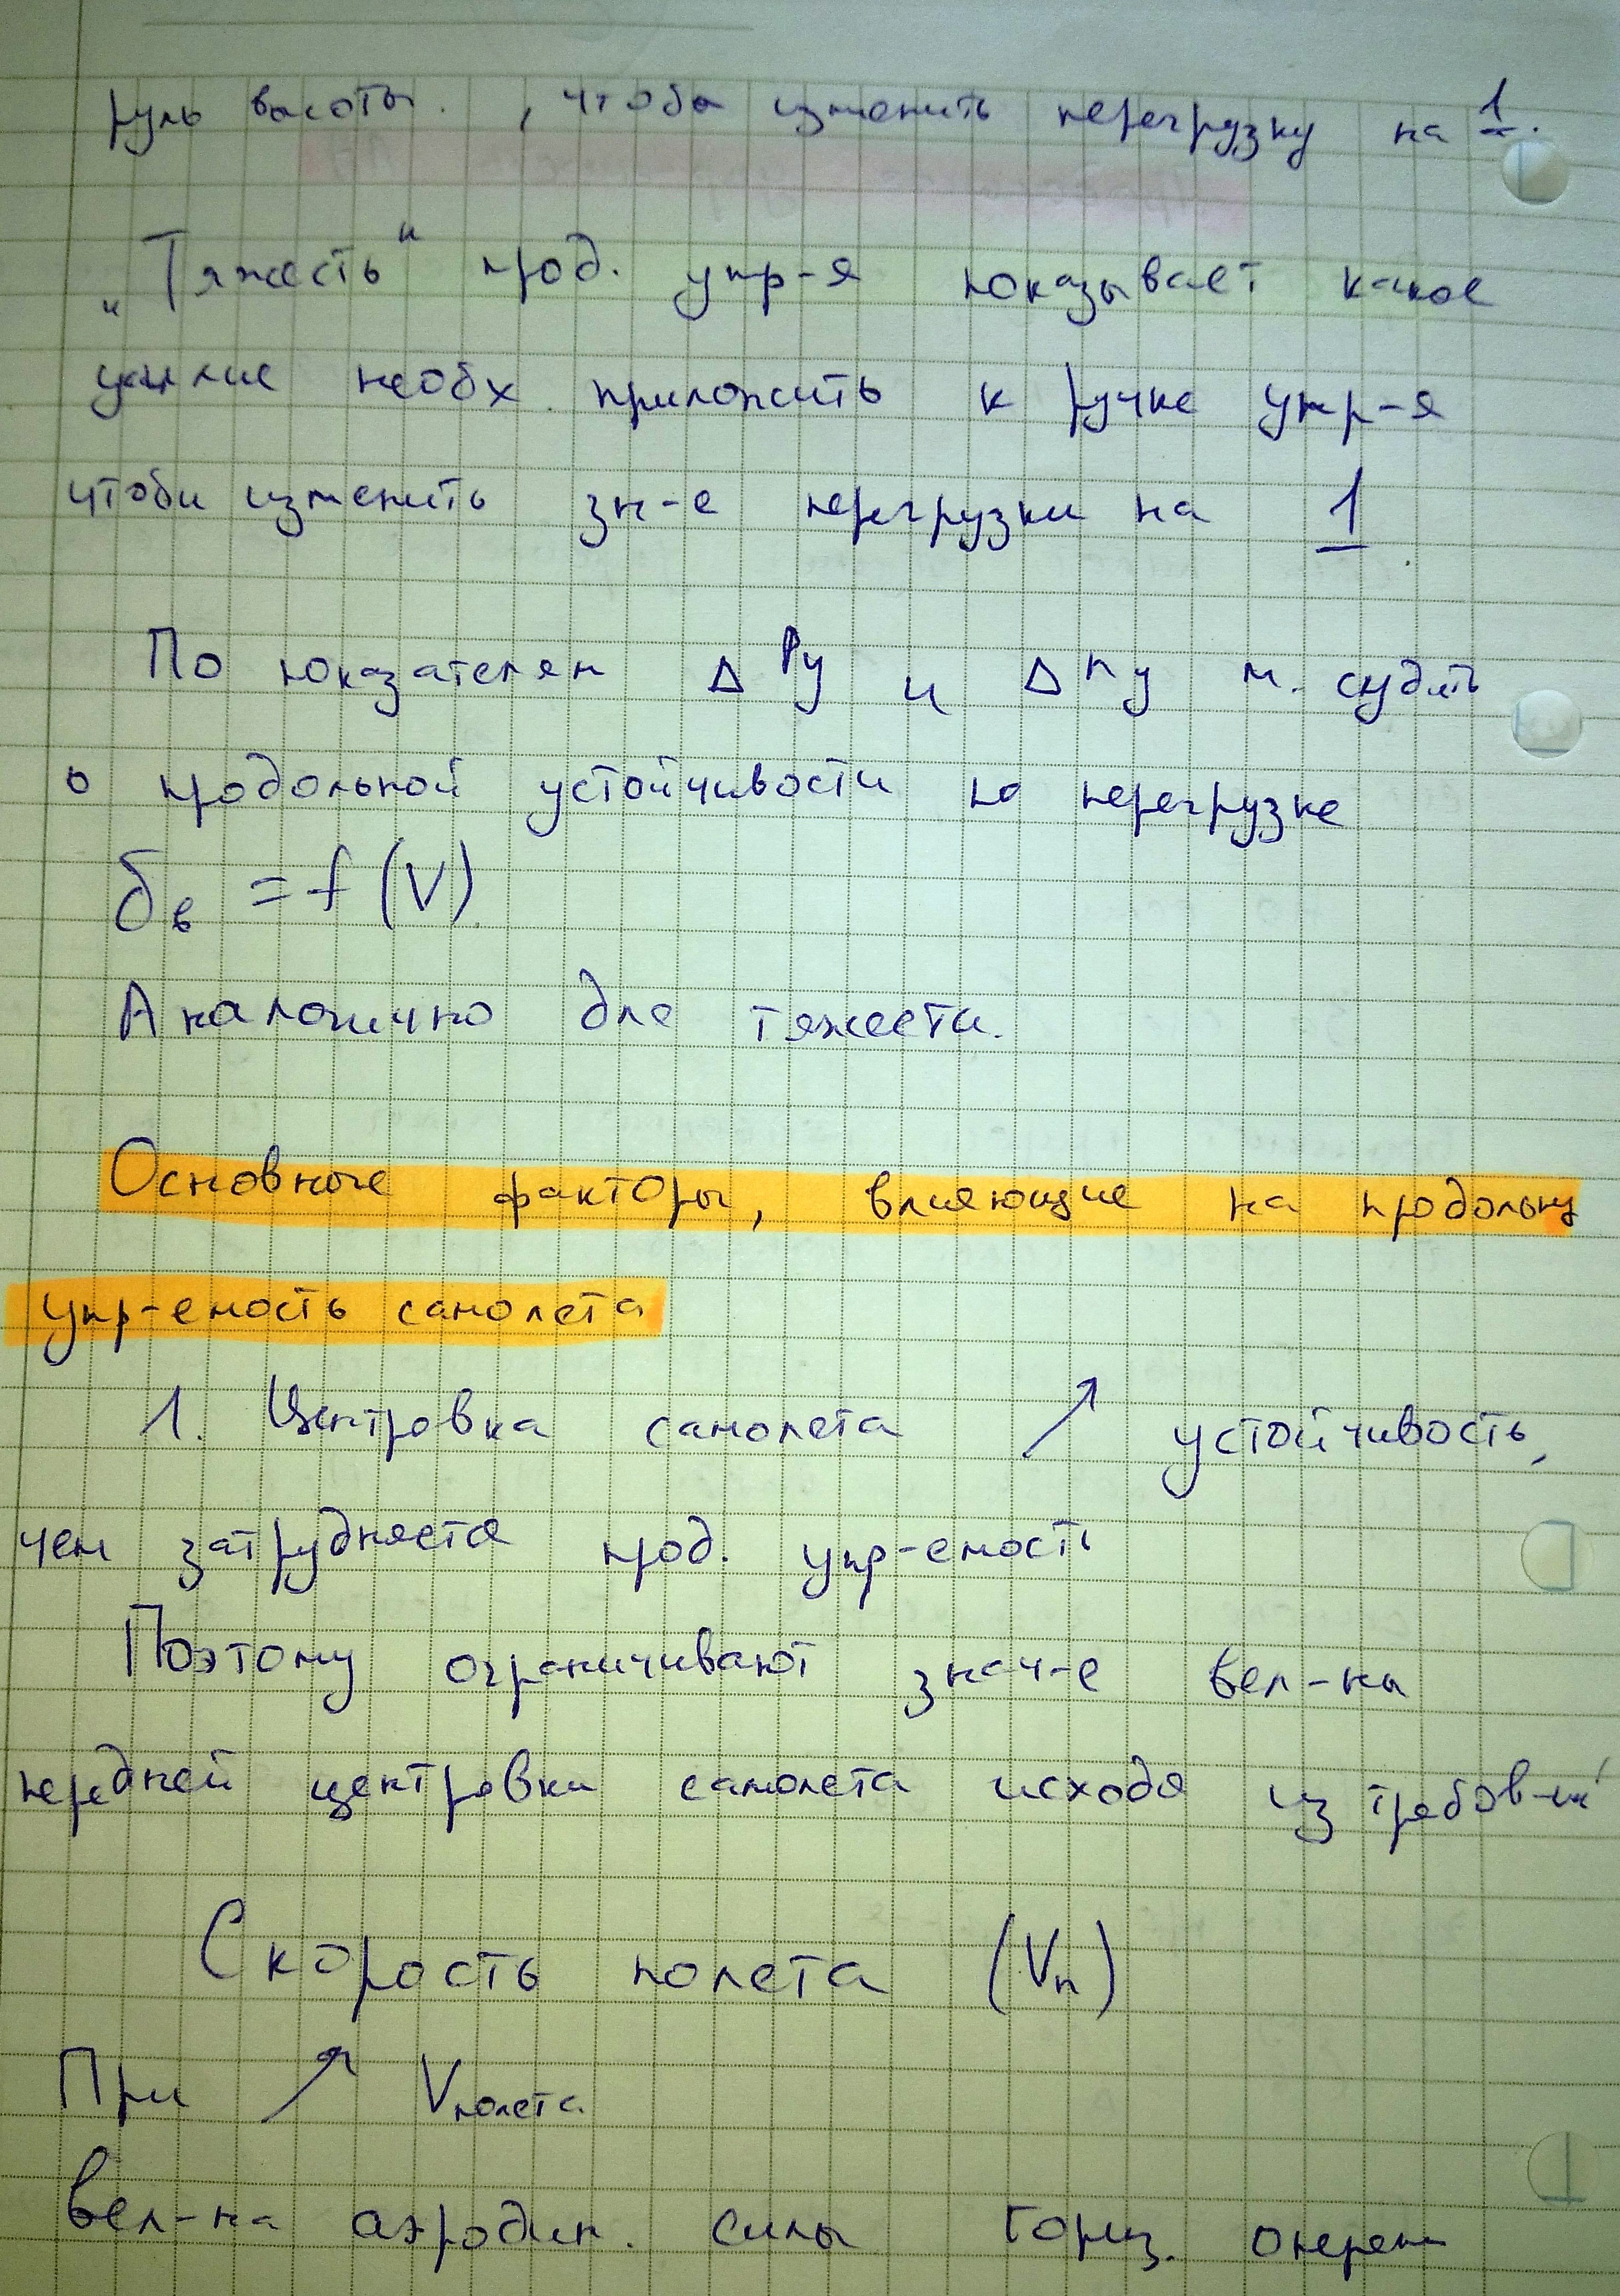 руль высоты. , чтобы изменить перегрузку на 1.
"Тяжесть" прод. упр-я показывает какое
усилие необх. приложить к ручке упр-я
чтобы изменить зн-е перегрузки на 1.
По показателям Δ Pу и Δ nу м. судить
о продольной устойчивости по перегрузке
δв = f (V)
Аналогично для тяжести.
Основные факторы, влияющие на продольну
упр-емость самолета
1. Центровка самолета ↗ устойчивость,
чем затрудняется прод. упр-емость
Поэтому ограничивают знач-е вел-ны
передней центровки самолета исходя из требов-ий
Скорость полета (Vп)
При ↗ Vполета
вел-на аэродин. силы гориз. оперен